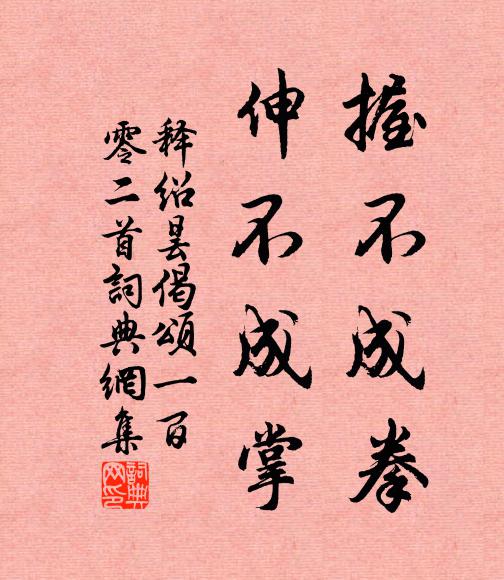 握不成拳
伸不成掌
释绍昙偈頌一百
零二首詞典網集
詞典网印